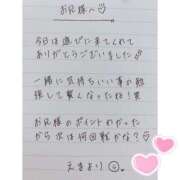 お兄様へ♡
今日は遊びに来てくれて
ありがとうございました
一緒に気持ちいい事め勉
強して賢くなったね!笑
お兄様のポイントめがった
から次は何回戦かな?
えまより